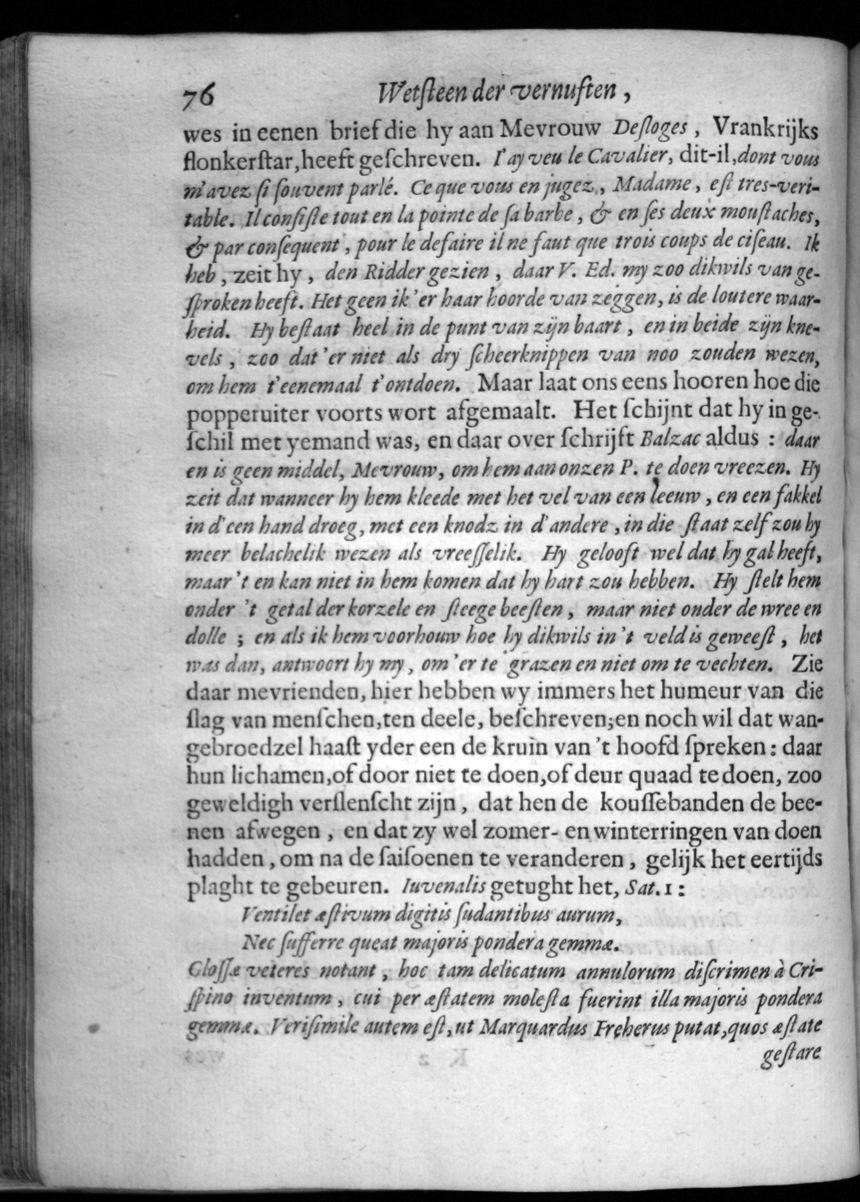 76 Wetſteen der vernuften,
wes in eenen brief die hy aan Mevrouw Desloges, Vrankrijks
flonkerſtar, heeft geſchreven. I'ay veu le Cavalier, dit-il, dont vous
m'avez ſi ſouvent parlé. Ce que vous en jugez, Madame, eſt tres-veri-
table. Il conſiſte tout en la pointe de ſa barbe, & en ſes deux mouſtaches,
& par conſequent, pour le defaire il ne faut que trois coups de ciſeau. Ik
heb, zeit hy, den Ridder gezien, daar V. Ed. my zoo dikwils van ge-
ſproken heeft. Het geen ik 'er haar hoorde van zeggen, is de loutere waar-
heid. Hy beſtaat heel in de punt van zijn baart, en in beide zijn kne-
vels, zoo dat 'er niet als dry ſcheerknippen van noo zouden wezen,
om hem t'eenemaal t'ontdoen. Maar laat ons eens hooren hoe die
popperuiter voorts wort afgemaalt. Het ſchijnt dat hy in ge-
ſchil met yemand was, en daar over ſchrijft Balzac aldus: daar
en is geen middel, Mevrouw, om hem aan onzen P. te doen vreezen. Hy
zeit dat wanneer hy hem kleede met het vel van een leeuw, en een fakkel
in d'een hand droeg, met een knodz in d'andere, in die ſtaat zelf zou hy
meer belachelik wezen als vreeſſelik. Hy gelooft wel dat hy gal heeft,
maar 't en kan niet in hem komen dat hy hart zou hebben. Hy ſtelt hem
onder 't getal der korzele en ſteege beeſten, maar niet onder de wree en
dolle; en als ik hem voorhouw hoe hy dikwils in 't veld is geweeſt, het
was dan, antwoort hy my, om 'er te grazen en niet om te vechten. Zie
daar mevrienden, hier hebben wy immers het humeur van die
ſlag van menſchen, ten deele, beſchreven; en noch wil dat wan-
gebroedzel haaſt yder een de kruin van 't hoofd ſpreken: daar
hun lichamen, of door niet te doen, of deur quaad te doen, zoo
geweldigh verſlenſcht zijn, dat hen de kouſſebanden de bee-
nen afwegen, en dat zy wel zomer- en winterringen van doen
hadden, om na de ſaiſoenen te veranderen, gelijk het eertijds
plaght te gebeuren. Iuvenalis getught het, Sat. 1:
Ventilet æſtivum digitis ſudantibus aurum,
Nec ſufferre queat majoris pondera gemmæ.
Gloſſæ veteres notant, hoc tam delicatum annulorum diſcrimen à Cri-
ſpino inventum, cui per æſtatem moleſta fuerint illa majoris pondera
gemmæ. Veriſimile autem eſt, ut Marquardus Freherus putat, quos æſtate
geſtare